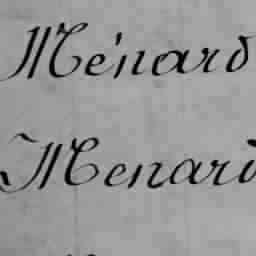 Ménard
Menard